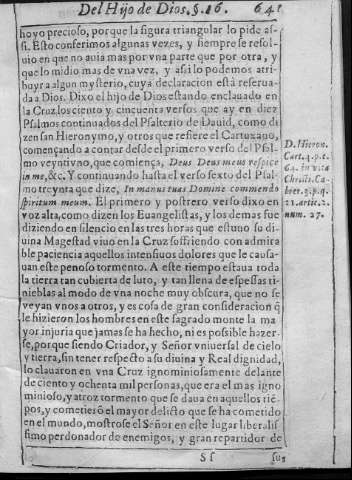 Del Hijo de Dios, §. 16. 641
hoyo precioso, porque la figura triangular lo pide as-
si. Esto conferimos algunas vezes, y siempre se resol-
uio en que no auia mas por vna parte que por otra, y
que lo midio mas de vna vez, y assi lo podemos atri-
buyr a algun mysterio, cuya declaracion està reserua-
da a Dios. Dixo el hijo de Dios estando enclauado en
la Cruz los ciento y cincuenta versos que ay en diez
Psalmos continuados del Psalterio de Dauid, como di
zen san Hieronymo, y otros que refiere el Cartuxano,
començando a contar desde el primero verso del Psal-
mo veyntivno, que comiença, Deus Deus meus respice
in me, &c. Y continuando hasta el verso sexto del Psal-
mo treynta que dize, In manus tuas Domine commendo
spiritum meum. El primero y postrero verso dixo en
voz alta, como dizen los Euangelistas, y los demas fue
diziendo en silencio en las tres horas que estuuo su di
uina Magestad viuo en la Cruz sosfriendo con admira
ble paciencia aquellos intensiuos dolores que le causa-
uan este penoso tormento. A este tiempo estaua toda
la tierra tan cubierta de luto, y tan llena de espessas ti-
nieblas al modo de vna noche muy obscura, que no se
veyan vnos a otros, y es cosa de gran consideracion q̃
le hizieron los hombres en este sagrado monte la ma
yor injuria que jamas se ha hecho, ni es possible hazer-
se, porque siendo Criador, y Señor vniuersal de cielo
y tierra, sin tener respecto a su diuina y Real dignidad,
lo clauaron en vna Cruz ignominiosamente delante
de ciento y ochenta mil personas, que era el mas igno
minioso, y atroz tormento que se daua en aquellos tiẽ-
pos, y cometiẽdo el mayor delicto que se ha cometido
en el mundo, mostrose el Señor en este lugar liberalis
simo perdonador de enemigos, y gran repartidor de
Sf sus
D. Hieron.
Cart. 4. p. c.
64. in vita
Christi. Ca-
num. 27.